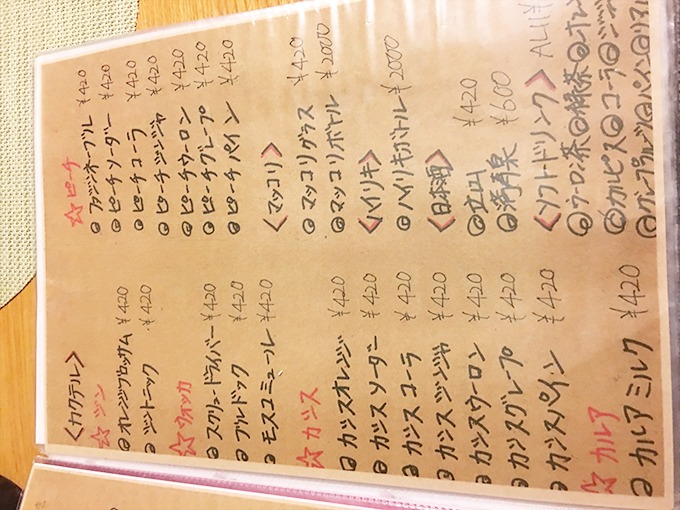 〈カクテル〉
☆ジン
オレンジブロッサム ¥420
ジントニック ¥420
☆ウォッカ
スクリュードライバー ¥420
ブルドック ¥420
モスコミュール ¥420
☆カシス
カシスオレンジ ¥420
カシスソーダー ¥420
カシスコーラ ¥420
カシスジンジャ ¥420
カシスウーロン ¥420
カシスグレープ ¥420
カシスパイン ¥420
☆カルア
カルアミルク ¥420
☆ピーチ
ファジーネーブル ¥420
ピーチソーダー ¥420
ピーチコーラ ¥420
ピーチジンジャ ¥420
ピーチウーロン ¥420
ピーチグレープ ¥420
ピーチパイン ¥420
〈マッコリ〉
マッコリグラス ¥420
マッコリボトル ¥2000
〈ハイリキ〉
ハイリキボトル ¥2000
〈日本酒〉
立山 ¥420
満寿泉 ¥600
〈ソフトドリンク〉 ALL
ウーロン茶 緑茶
カルピス コーラ
パイン